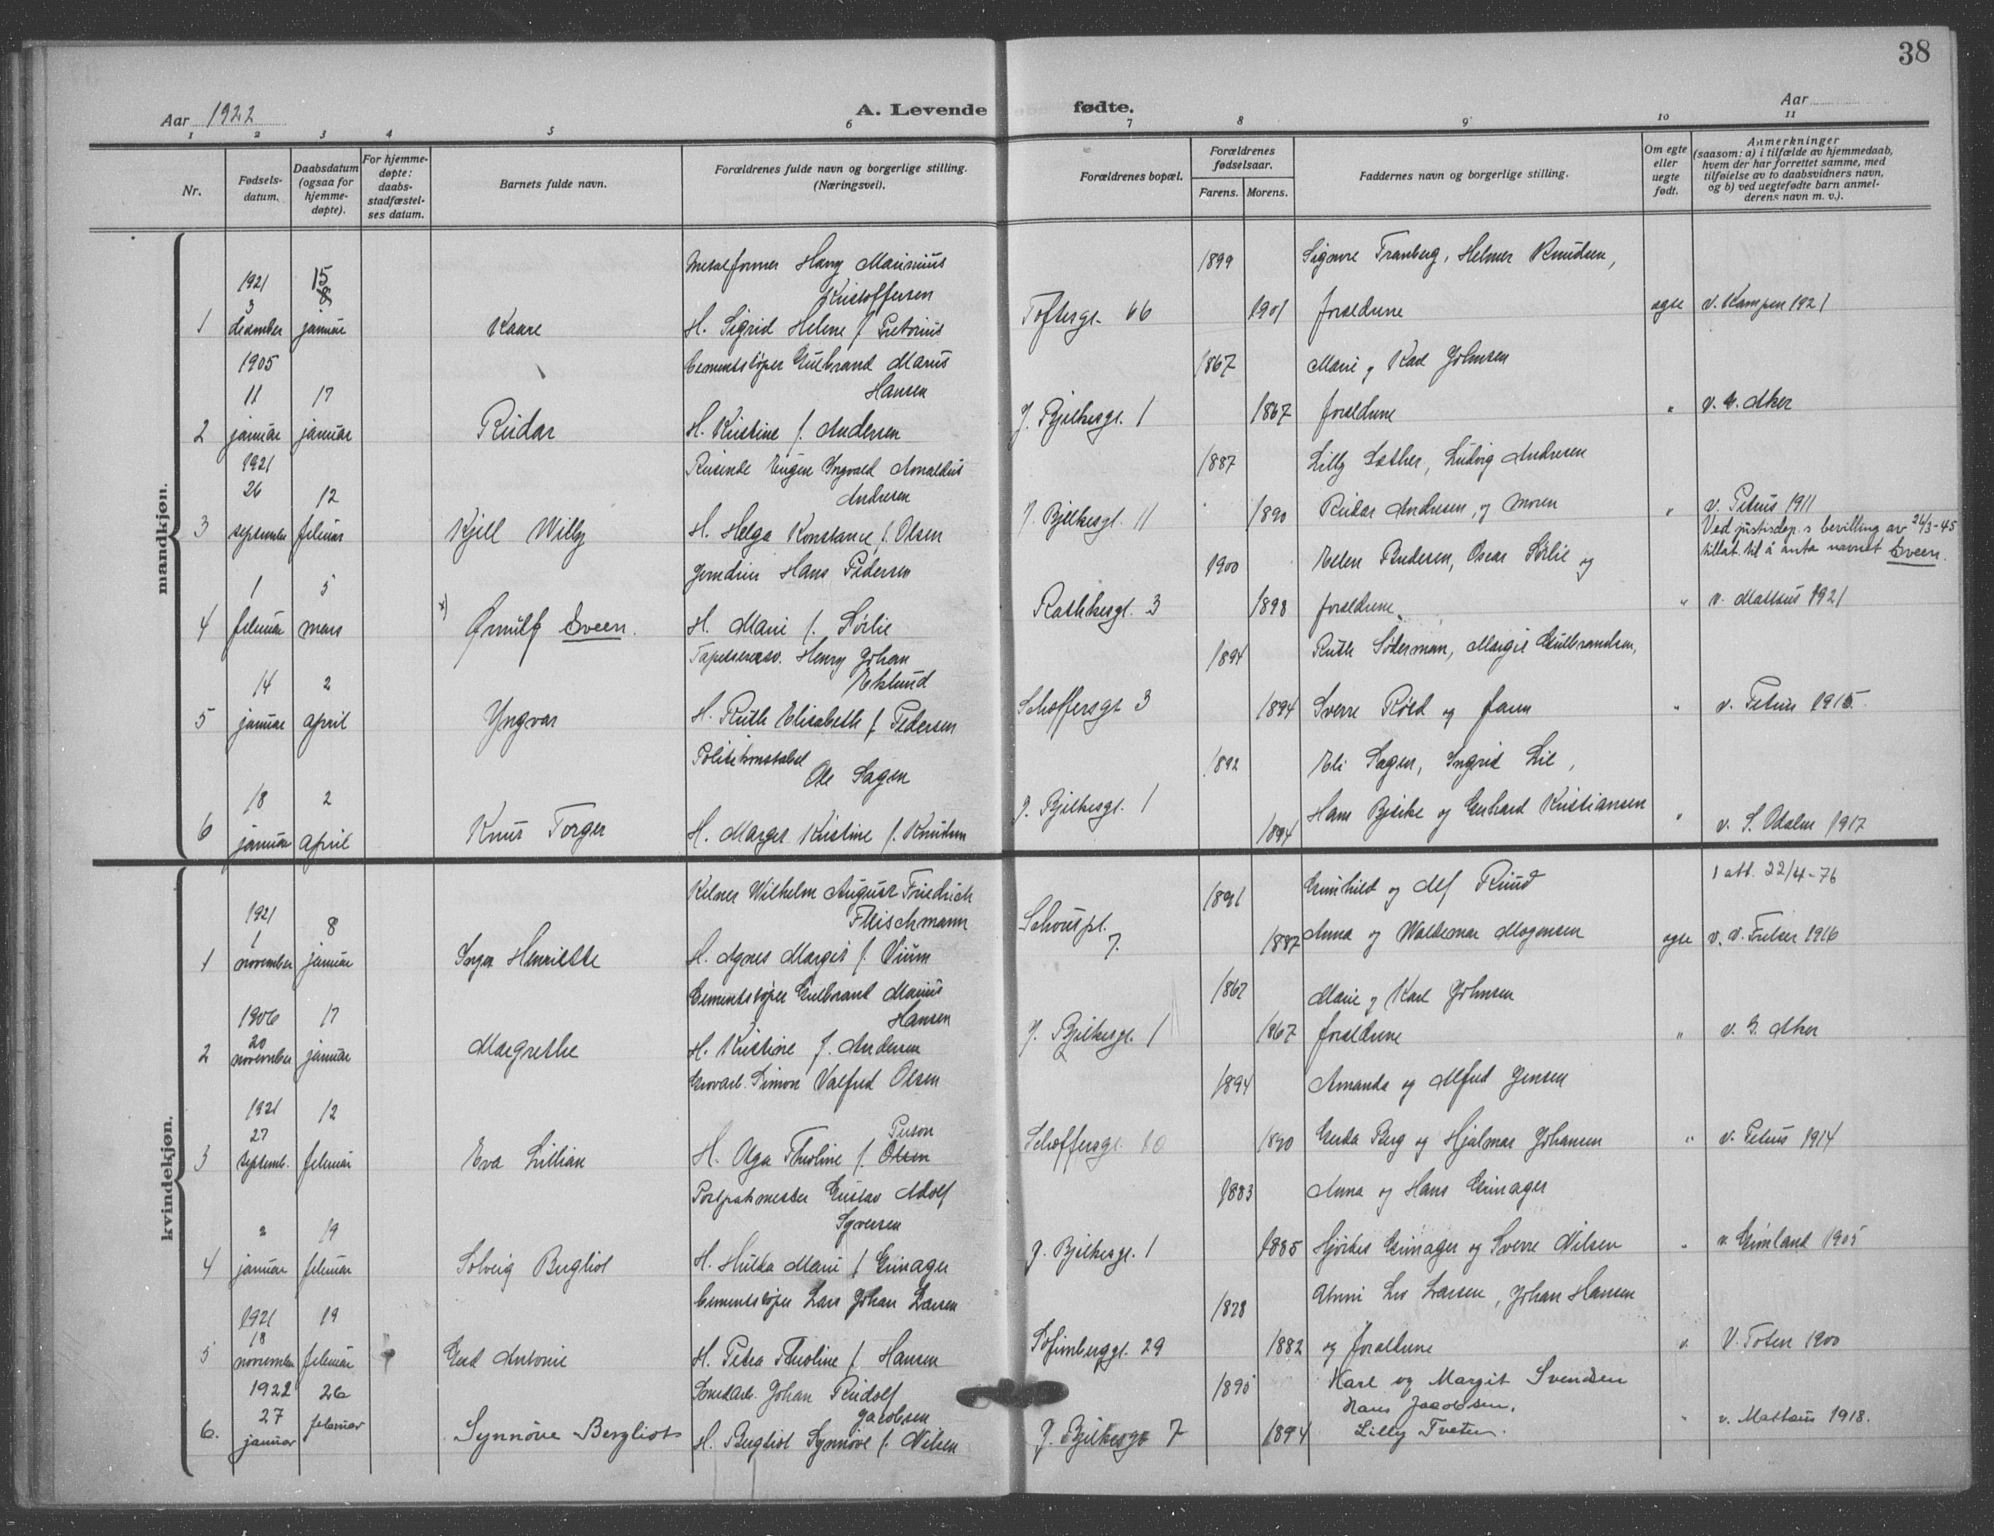 38
Aar 1922
A. Levende fødte.
Aar
1 2 3 4 5 6 7 8 9 10 11
Nr.
Fødsels-
datum.
Daabsdatum
(ogsaa for
hjemme-
døpte).
For hjemme-
døpte:
daabs-
stadfæstel-
ses datum.
Barnets fulde navn.
Forældrenes fulde navn og borgerlige stilling.
(Næringsvei).
Forældrenes bopæl.
Forældrenes
fødselsaar.
Farens. Morens.
Faddernes navn og borgerlige stilling.
Om egte
eller
uegte
født.
Anmerkninger
(saasom: a) i tilfælde av hjemmedaab,
hvem der har forrettet samme, med
tilføielse av to daabsvidners navn,
og b) ved uegtefødte barn anmel-
derens navn m. v.).
mandkjøn.
Metalformer Marinius
Kristoffersen
1899
Helmer Knudsen,
1921 15
3 8
1 desember januar Kaare H. Sigrid Helene f.
Toftesgt. 66 1901 forældrene egte v. Kampen 1921
1905 Cementstøper Gulbrand Marius
Hansen
1867 Marie og Karl Johnsen
11 17
2 januar januar Reidar H. Kristine f. Andersen
J. Bjelkesgt. 1 1867 forældrene " v. Aker
1921 Eugen Yngvald
Andresen
1887 Lilly Sæther, Ludvig Andresen
26 12
3 september februar Kjell Willy H. Helga Konstance f. Olsen
J. Bjelkesgt. 11 1890 Reidar Andresen og moren " v. Petrus 1911
Ved justisdep.s bevilling av 24/3-45
tillat. til å anta navnet Sveen.
Hans Pedersen
1900 Oscar Sørlie og
1 5
4 februar mars x) Ørnulf Sveen. H. Marie f. Sørlie
Rathkesgt. 3 1898 forældrene. " v. Mattæus 1921
Tapetserersv. Henry Johan
Eklund
1894 Ruth Søderman, Margit Gulbrandsen,
14 2
5 januar april Yngvar H. Ruth Elisabeth f. Pedersen
Schoffersgt 3 1894 Sverre Røed og faren " v. Petrus 1915
Politikonstabel
Ole Sagen
1892 Eli Sagen, Ingrid Lie,
18 2
6 januar april Knut Torger H. Margit Kristine f. Knudsen
J. Bjelkesgt. 1 1894 Hans og Gerhard Kristiansen " v. S. Odalen 1917
kvindekjøn.
1 att. 22/4-76
Kelner Wilhelm August Friedrich
Fleischmann
1891 Gunhild og Alf Ruud
1921 8
1
1 november januar Inger Henriette H. Agnes Margit f. Vium
Schouspl. 7. 1887 Anna og Waldemar Mogensen egte v. V. Frelser 1916
Cementstøper Gulbrand Marius
Hansen
1867 Marie og Karl Johnsen
1906 17
20
2 november januar Margrethe H. Kristine f. Andersen
J. Bjelkesgt. 1 1867 forældrene " v. Aker
Grovarb. Simon Valfred Olsen
1894 Amanda og Alfred Jensen
1921 12
27
3 septemb. februar Eva Lillian H. Olga Theoline f. Olsen
Schoffersgt. 10 1890 Gerda Berg og Hjalmar Johansen " v. Petrus 1914
Gustav Adolf
Syversen
1883 Anna og Hans Grinager
2 19
4 januar februar Solveig Bergliot H. Hulda Marie f. Grinager
J. Bjelkesgt. 1 1885 Hjørdes Grinager og Sverre Nilsen " v. Grønland 1905
Cementstøper Lars Johan Larsen
1878 Liv Larsen, Johan Hansen
1921 19
18
5 november februar Gerd Antonie H. Petra Theoline f. Hansen
Sofienberggt. 29 1882 og forældrene " V. Toten 1900
Johan Rudolf
Jacobsen
1895 Karl og Margit Svendsen
Hans Jacobsen,
1922 26
27 februar
6. januar Synnøve Bergliot H. Bergliot Synnøve f. Nilsen
J. Bjelkesgt 7 1894 Lilly Tveten. " v. Mattæus 1918.